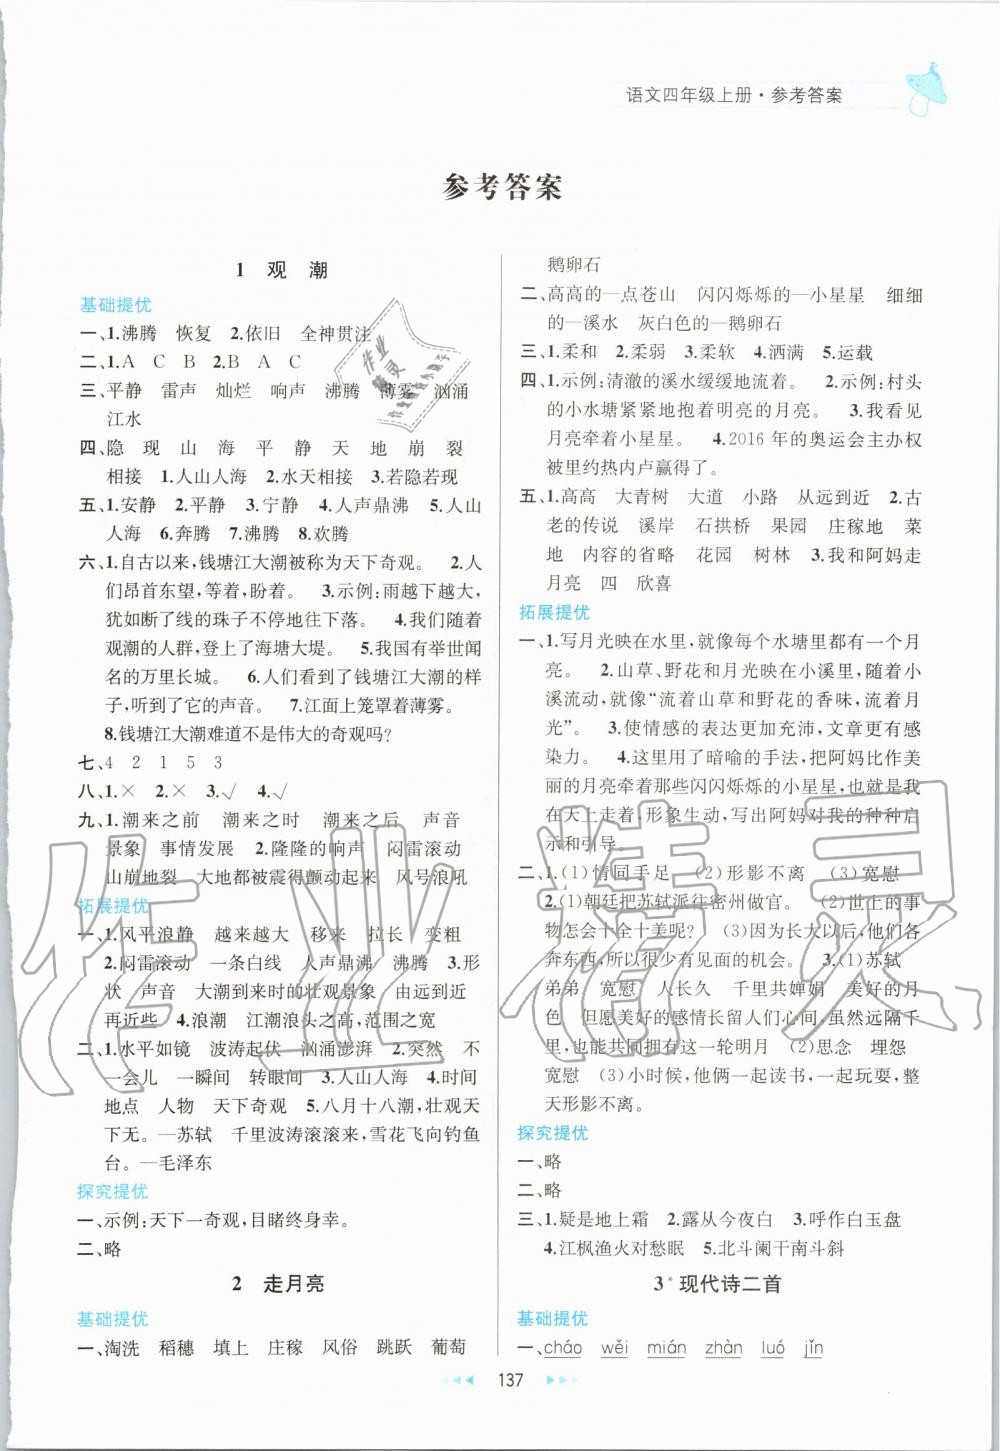 语文四年级上册·参考答案
参考答案
1 观 潮
基础提优
一、1.沸腾 恢复 2.依旧 全神贯注
二、1.A C B 2.B A C
三、平静 雷声 灿烂 响声 沸腾 薄雾 汹涌
江水
四、隐 现 山 海 平 静 天 地 崩 裂
相接 1.人山人海 2.水天相接 3.若隐若现
五、1.安静 2.平静 3.宁静 4.人声鼎沸 5.人山
人海 6.奔腾 7.沸腾 8.欢腾
六、1.自古以来,钱塘江大潮被称为天下奇观。 2.人
们昂首东望,等着,盼着。 3.示例:雨越下越大,
犹如断了线的珠子不停地往下落。 4.我们随着
观潮的人群,登上了海塘大堤。 5.我国有举世闻
名的万里长城。 6.人们看到了钱塘江大潮的样
子,听到了它的声音。 7.江面上笼罩着薄雾。
8.钱塘江大潮难道不是伟大的奇观吗?
七、4 2 1 5 3
八、1.× 2.× 3.√ 4.√
九、1.潮来之前 潮来之时 潮来之后 声音
景象 事情发展 2.隆隆的响声 闷雷滚动
山崩地裂 大地被震得颤动起来 风号浪吼
拓展提优
一、1.风平浪静 越来越大 移来 拉长 变粗
2.闷雷滚动 一条白线 人声鼎沸 沸腾 3.形
状 声音 大潮到来时的壮观景象 由远到近
再近些 4.浪潮 江潮浪头之高,范围之宽
二、1.水平如镜 波涛起伏 汹涌澎湃 2.突然 不
一会儿 一瞬间 转眼间 3.人山人海 4.时间
地点 人物 天下奇观 5.八月十八潮,壮观天
下无。—苏轼 千里波涛滚滚来,雪花飞向钓鱼
台。—毛泽东
探究提优
一、示例:天下一奇观,目睹终身幸。
二、略
2 走月亮
基础提优
一、淘洗 稻穗 填上 庄稼 风俗 跳跃 葡萄
鹅卵石
二、高高的—点苍山 闪闪烁烁的—小星星 细细
的—溪水 灰白色的—鹅卵石
三、1.柔和 2.柔弱 3.柔软 4.洒满 5.运载
四、1.示例:清澈的溪水缓缓地流着。 2.示例:村头
的小水塘紧紧地抱着明亮的月亮。 3.我看见
月亮牵着小星星。 4.2016 年的奥运会主办权
被里约热内卢赢得了。
五、1.高高 大青树 大道 小路 从远到近 2.古
老的传说 溪岸 石拱桥 果园 庄稼地 菜
地 内容的省略 花园 树林 3.我和阿妈走
月亮 四 欣喜
拓展提优
一、1.写月光映在水里,就像每个水塘里都有一个月
亮。 2.山草、野花和月光映在小溪里,随着小
溪流动,就像“流着山草和野花的香味,流着月
光”。 3.使情感的表达更加充沛,文章更有感
染力。 4.这里用了暗喻的手法,把阿妈比作美
丽的月亮牵着那些闪闪烁烁的小星星,也就是我
在天上走着,形象生动,写出阿妈对我的种种启
示和引导。
二、1.(1)情同手足 (2)形影不离 (3)宽慰
2.(1)朝廷把苏轼派往密州做官。 (2)世上的事
物怎会十全十美呢? (3)因为长大以后,他们各
奔东西,所以很少有见面的机会。 3.(1)苏轼
弟弟 宽慰 人长久 千里共婵娟 美好的月
色 但愿美好的感情长留人们心间,虽然远隔千
里,也能共同拥有这一轮明月 (2)思念 埋怨
宽慰 (3)小时候,他俩一起读书,一起玩耍,整
天形影不离。
探究提优
一、略
二、略
三、1.疑是地上霜 2.露从今夜白 3.呼作白玉盘
4.江枫渔火对愁眠 5.北斗阑干南斗斜
3* 现代诗二首
基础提优
一、cháo wěi mián zhàn luó jǐn
137
作业精灵